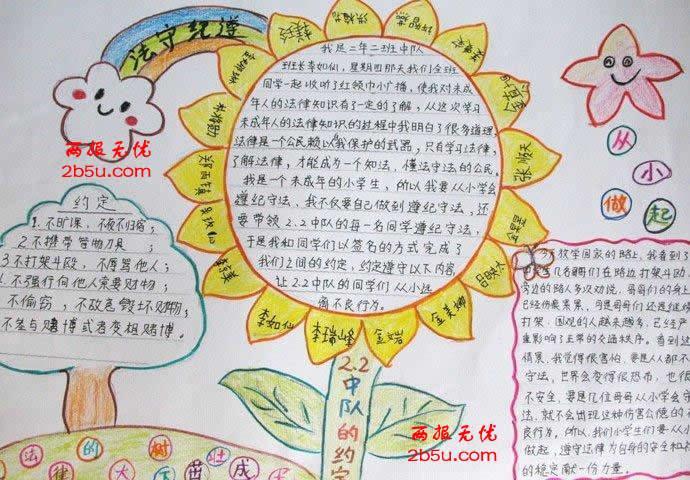 遵纪守法
我是二年二班中队
班长李如仙，星期四那天我们全班
同学一起收听了红领巾小广播，使我对未成
年人的法律知识有了一定的了解，从这次学习
未成年人的法律知识的过程中我明白了很多道理，
法律是一个公民赖以我保护的武器，只有学习法律，
了解法律，才能成为一个知法，懂法守法的公民。
我是一个未成年的小学生，所以我要从小学会
遵纪守法，我不仅要自己做到遵纪守法，还
要带领2.2中队的每一名同学遵纪守法，
于是我和同学们以签名的方式完成了
我们之间的约定，约定遵守以下内容，
让2.2中队的同学们从小远
离不良行为。
张顺天
金美娜
金岩
李瑞峰
李如仙
2.2中队的约定
约定
1.不旷课，不夜不归宿；
2.不携带管制刀具；
3.不打架斗殴，不辱骂他人；
4.不强行向他人索要财物；
不偷窃，不故意毁坏财物；
不参与赌博或者变相赌博。
从小做起
放学回家的路上，我看到了
几名哥哥们在路边打架斗殴，
旁边的路人多次劝说，哥哥们的身上
已经伤痕累累，可是哥哥们还是继续
打架，围观的人越来越多，已经严
重影响了正常的交通秩序。看到这
情景，我觉得很害怕，要是人人都不
守法，世界会变得很恐怖，也很
不安全，要是几位哥哥从小学会守
法，就不会出现这种伤害公德的
良行为。所以，我们小学生们要从小
做起，遵守法律为自身的安全和
的稳定献一份力量。
法律的大树下茁壮成
两报无优
2b5u.com
两报无优
2b5u.com